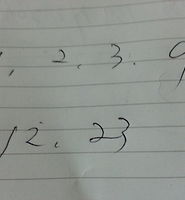 , 2, 3. 9
12. 23